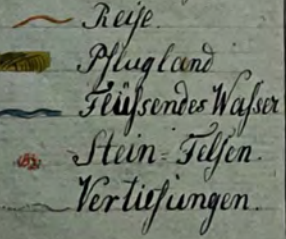 Reise.
Pflugland
Flüssendes Wasser
Stein= Felsen.
Vertiefungen.